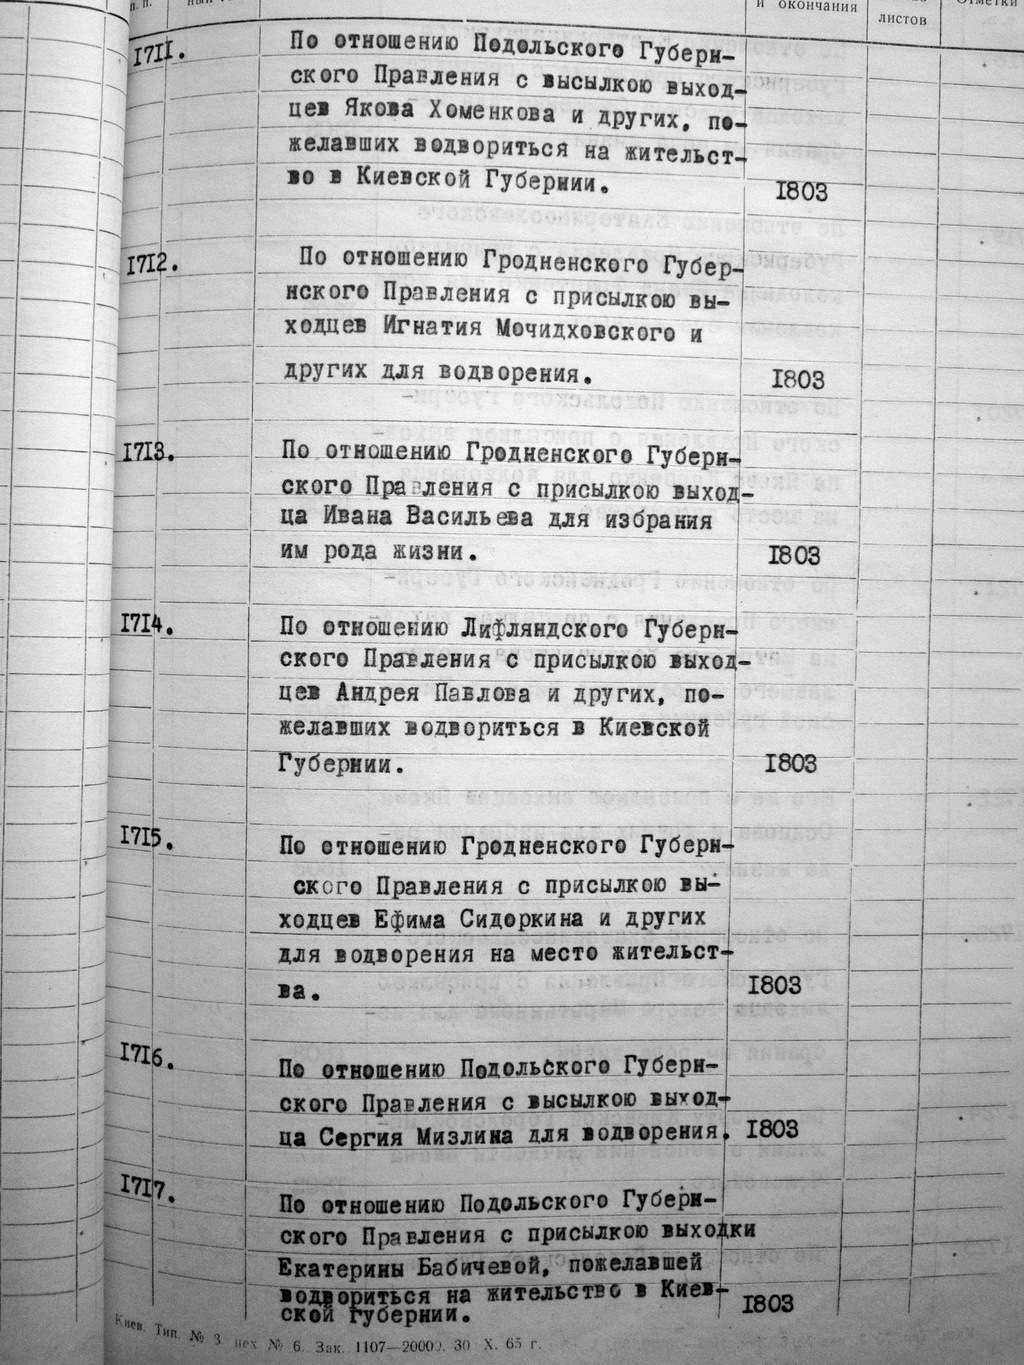 и окончания
листов
1711.
По отношению Подольского Губерн-
ского Правления с высылкою выход-
цев Якова Хоменкова и других, по-
желавших водвориться на жительст-
во в Киевской Губернии.
1803
1712.
По отношению Гродненского Губер-
нского Правления с присылкою вы-
ходцев Игнатия Мочидховского и
других для водворения.
1803
1713.
По отношению Гродненского Губерн-
ского Правления с присылкою выход-
ца Ивана Васильева для избрания
им рода жизни.
1803
1714.
По отношению Лифляндского Губерн-
ского Правления с присылкою выход-
цев Андрея Павлова и других, по-
желавших водвориться в Киевской
Губернии.
1803
1715.
По отношению Гродненского Губерн-
ского Правления с присылкою вы-
ходцев Ефима Сидоркина и других
для водворения на место жительст-
ва.
1803
1716.
По отношению Подольского Губерн-
ского Правления с высылкою выход-
ца Сергия Мизлина для водворения.
1803
1717.
По отношению Подольского Губерн-
ского Правления с присылкою выходки
Екатерины Бабичевой, пожелавшей
водвориться на жительство в Киев-
ской Губернии.
1803
Киев. Тип. № 3 цех № 6. Зак. 1107—20000. 30 X. 65 г.